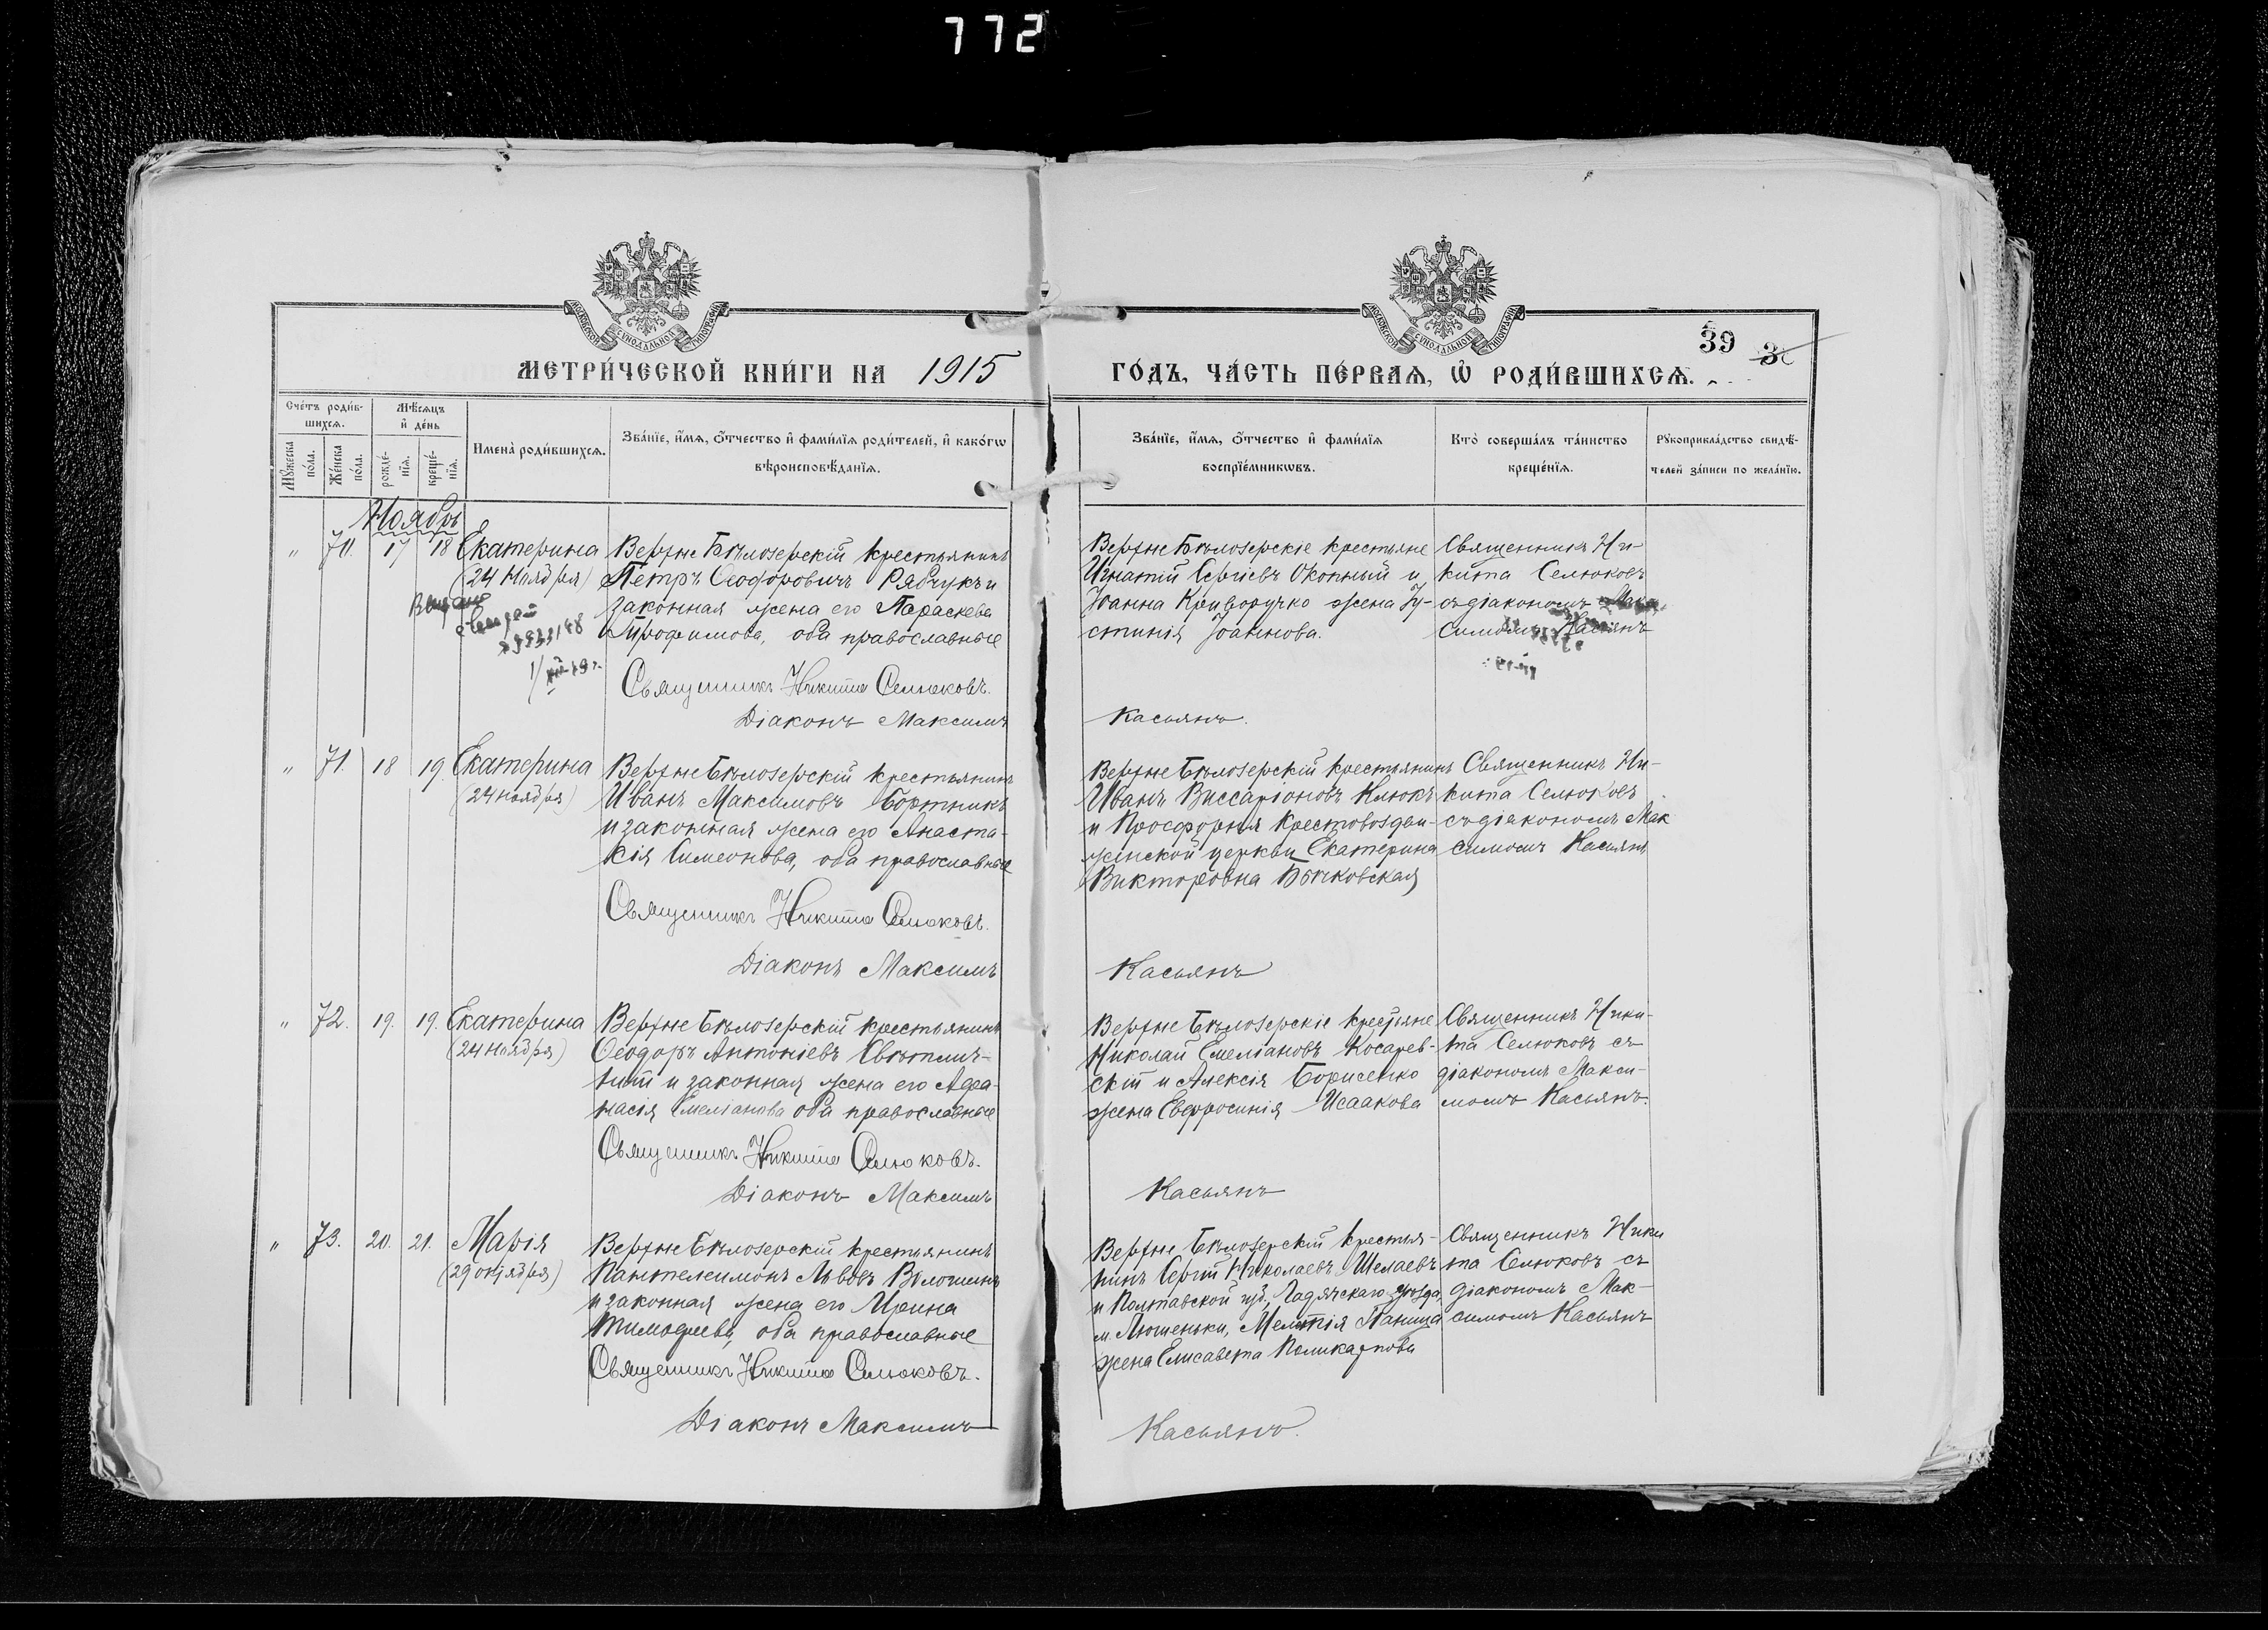 772
МОСКОВСКОЙ СѴНОДАЛЬНОЙ ТИПОГРАФІИ
МОСКОВСКОЙ СѴНОДАЛЬНОЙ ТИПОГРАФІИ
39
МЕТРИ́ЧЕСКОЙ КНИ́ГИ НА 1915
ГО́ДЪ, ЧА́СТЬ ПЕ́РВАѦ, Ѡ҆ РОДИ́ВШИХСѦ.
Сче́тъ роди́в-
шихсѧ.
Мꙋ́жеска
по́ла.
Же́нска
по́ла.
Мѣ́сѧцъ
и҆ де́нь
рожде́-
нїѧ.
креще́-
нїѧ.
Имена̀ роди́вшихсѧ.
Зва́нїе, и҆́мѧ, ѻ҆́тчество и҆ фами́лїѧ роди́телей, и҆ како́гѡ
вѣроисповѣ́данїѧ.
Зва́нїе, и҆́мѧ, ѻ҆́тчество и҆ фами́лїѧ
воспрїе́мникѡвъ.
Кто̀ соверша́лъ та́инство
креще́нїѧ.
Рꙋкоприкла́дство свидѣ́-
телей за́писи по жела́нїю.
Ноябрь
" 70. 17 18 Екатерина
(24 Ноября)
Верхне Бѣлозерскій крестьянинъ
Петръ Ѳеодоровичъ Рябчукъ и
законная жена его Параскева
Трофимова, оба православные
Священникъ Никита Селюковъ.
Діаконъ Максимъ
Верхне Бѣлозерскіе крестьяне
Игнатій Сергіевъ Окопный и
Іоанна Криворучко жена Іу-
стинія Іоаннова.
Касьянъ.
Священникъ Ни-
кита Селюковъ
съ діакономъ Мак-
симомъ Касьянъ
" 71. 18 19. Екатерина
(24 ноября)
Верхне Бѣлозерскій крестьянинъ
Иванъ Максимовъ Бортникъ
и законная жена его Анаста-
сія Симеонова, оба православные
Священникъ Никита Селюковъ.
Діаконъ Максимъ
Верхне Бѣлозерскій крестьянинъ
Иванъ Виссаріоновъ Клюкъ
и Просфорня Крестовоздви-
женской церкви Екатерина
Викторовна Бычковская
Касьянъ
Священникъ Ни-
кита Селюковъ
съ діакономъ Мак
симомъ Касьянъ
" 72. 19. 19. Екатерина
(24 ноября)
Верхне Бѣлозерскій крестьянинъ
Ѳеодоръ Антоніевъ Свѣтлич-
ный и законная жена его Афа-
насія Емеліанова оба православные
Священникъ Никита Селюковъ.
Діаконъ Максимъ
Верхне Бѣлозерскіе крестьяне
Николай Емеліановъ Косарев-
скій и Алексія Борисенко
жена Евфросинія Исаакова
Касьянъ
Священникъ Ники-
та Селюковъ съ
діакономъ Макси-
момъ Касьянъ.
" 73. 20. 21. Марія
(29 октября)
Верхне Бѣлозерскій крестьянинъ
Пантелеимонъ Львовъ Волошинъ
и законная жена его Ирина
Тимофеева, оба православные
Священникъ Никита Селюковъ.
Діаконъ Максимъ
Верхне Бѣлозерскій крестья-
нинъ Сергій Николаевъ Шелаевъ
и Полтавской губ., Гадячскаго уѣзда,
м. Лютеньки, Мелетія Паница
жена Елисавета Поликарпова
Касьянъ.
Священникъ Ники
та Селюковъ съ
діакономъ Мак-
симомъ Касьянъ